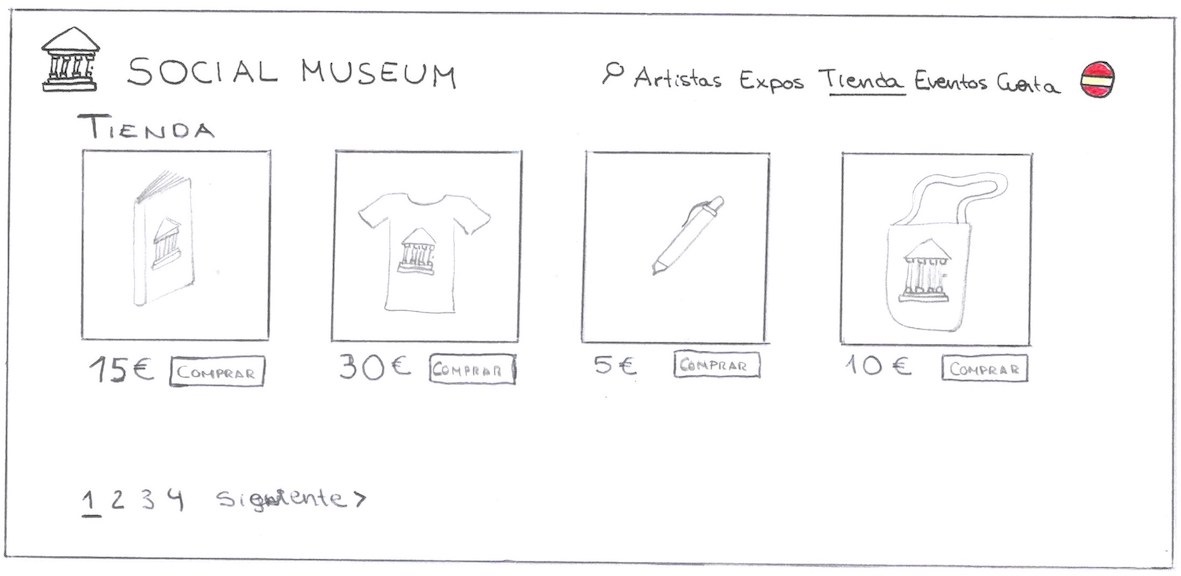 SOCIAL MUSEUM
Artistas Expos Tienda Eventos Cuenta
TIENDA
15€ COMPRAR 30€ COMPRAR 5€ COMPRAR 10€ COMPRAR
1 2 3 4 Siguiente >